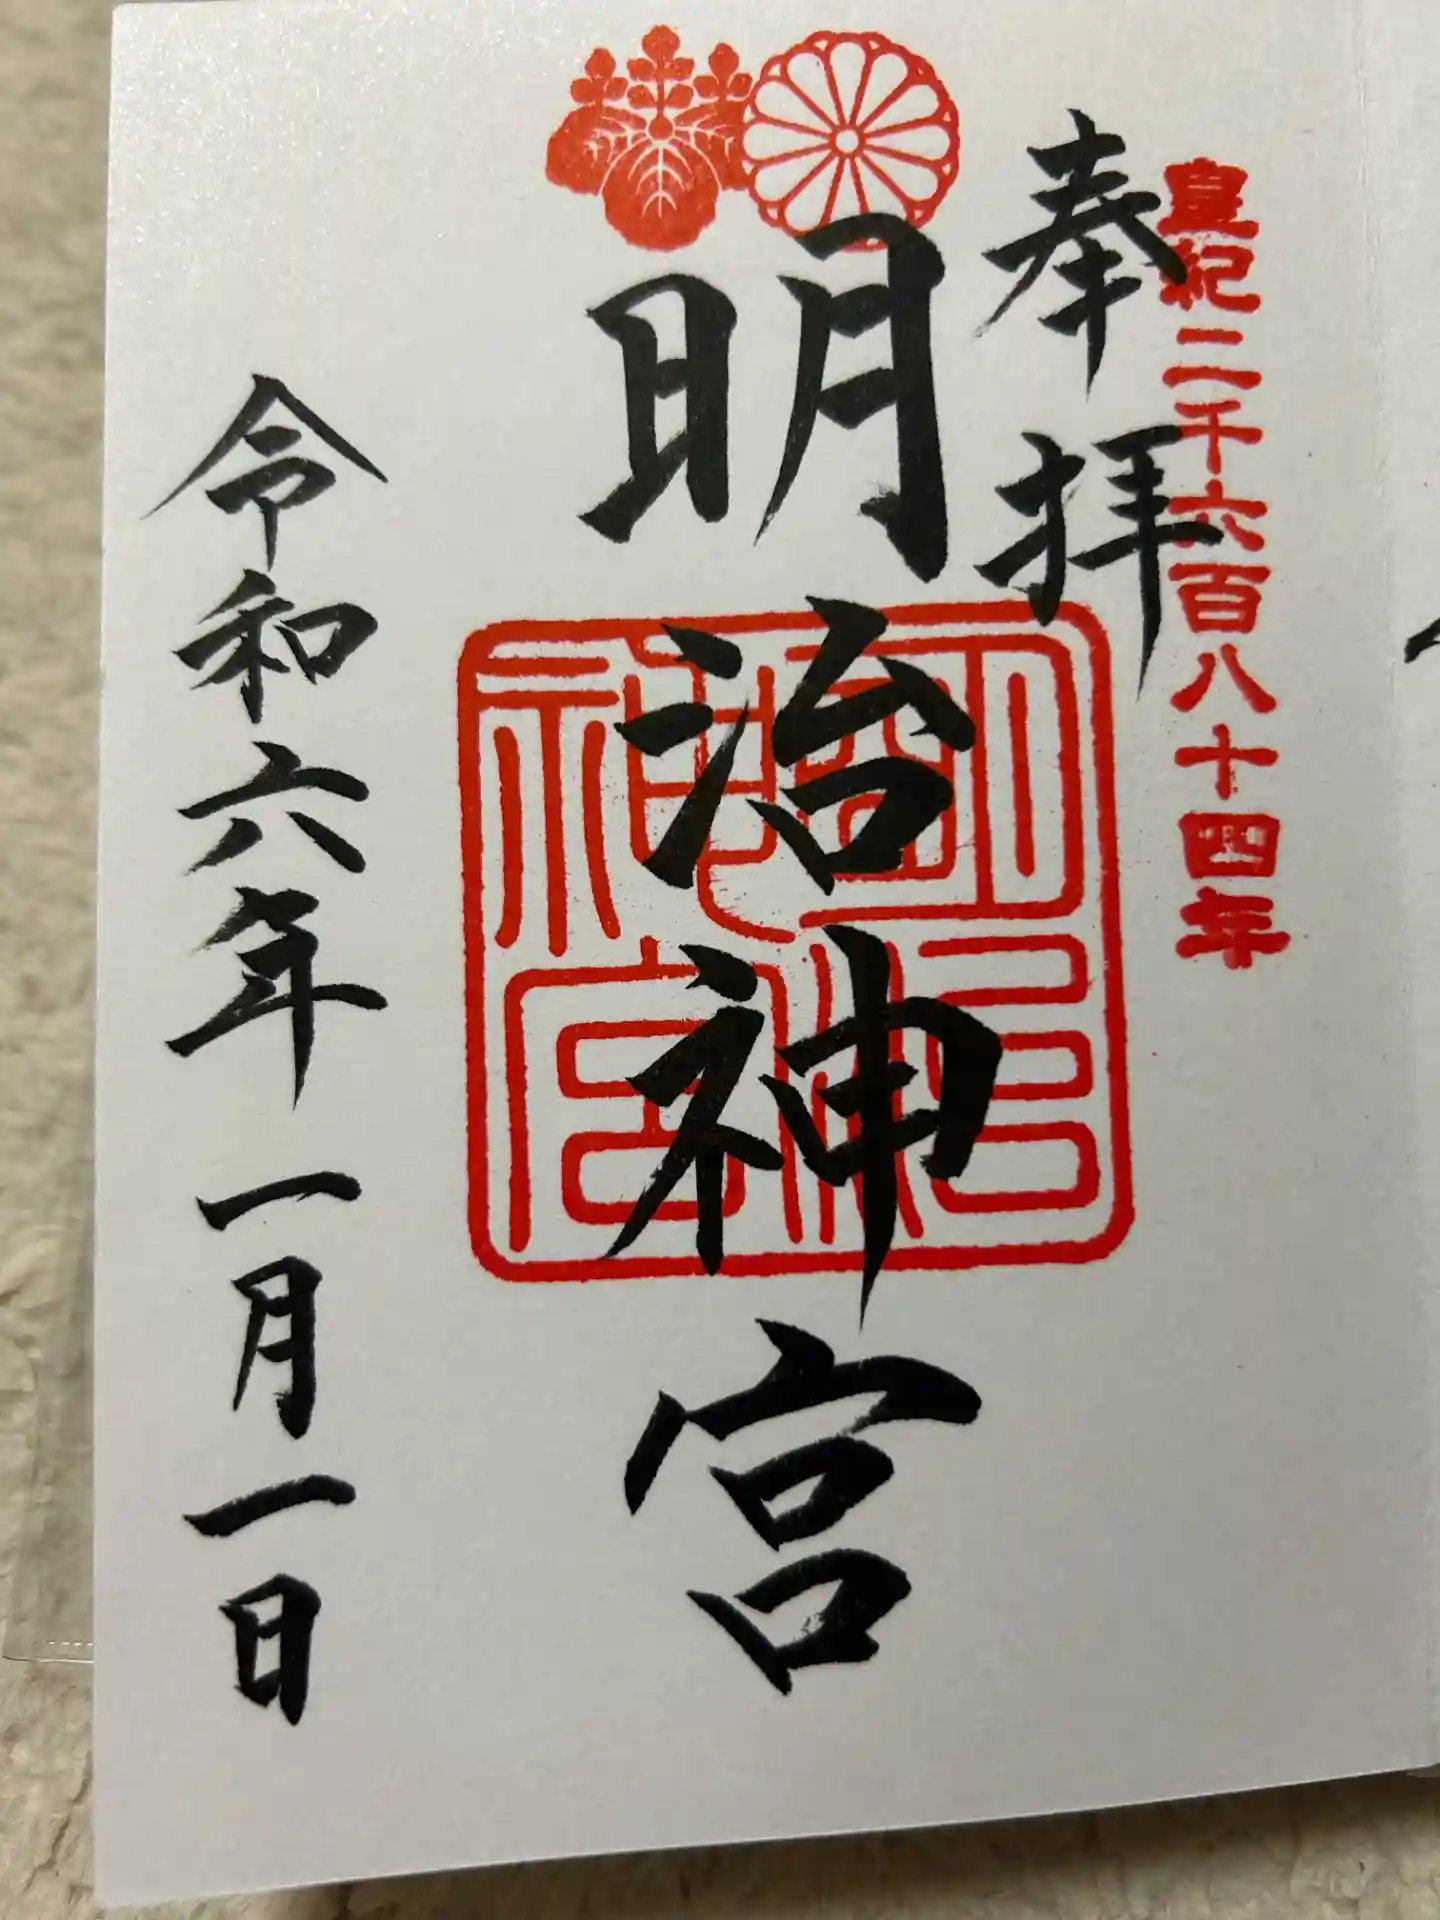 皇紀二千六百八十四年
奉拝
明治神宮
明治神宮
令和六年一月一日